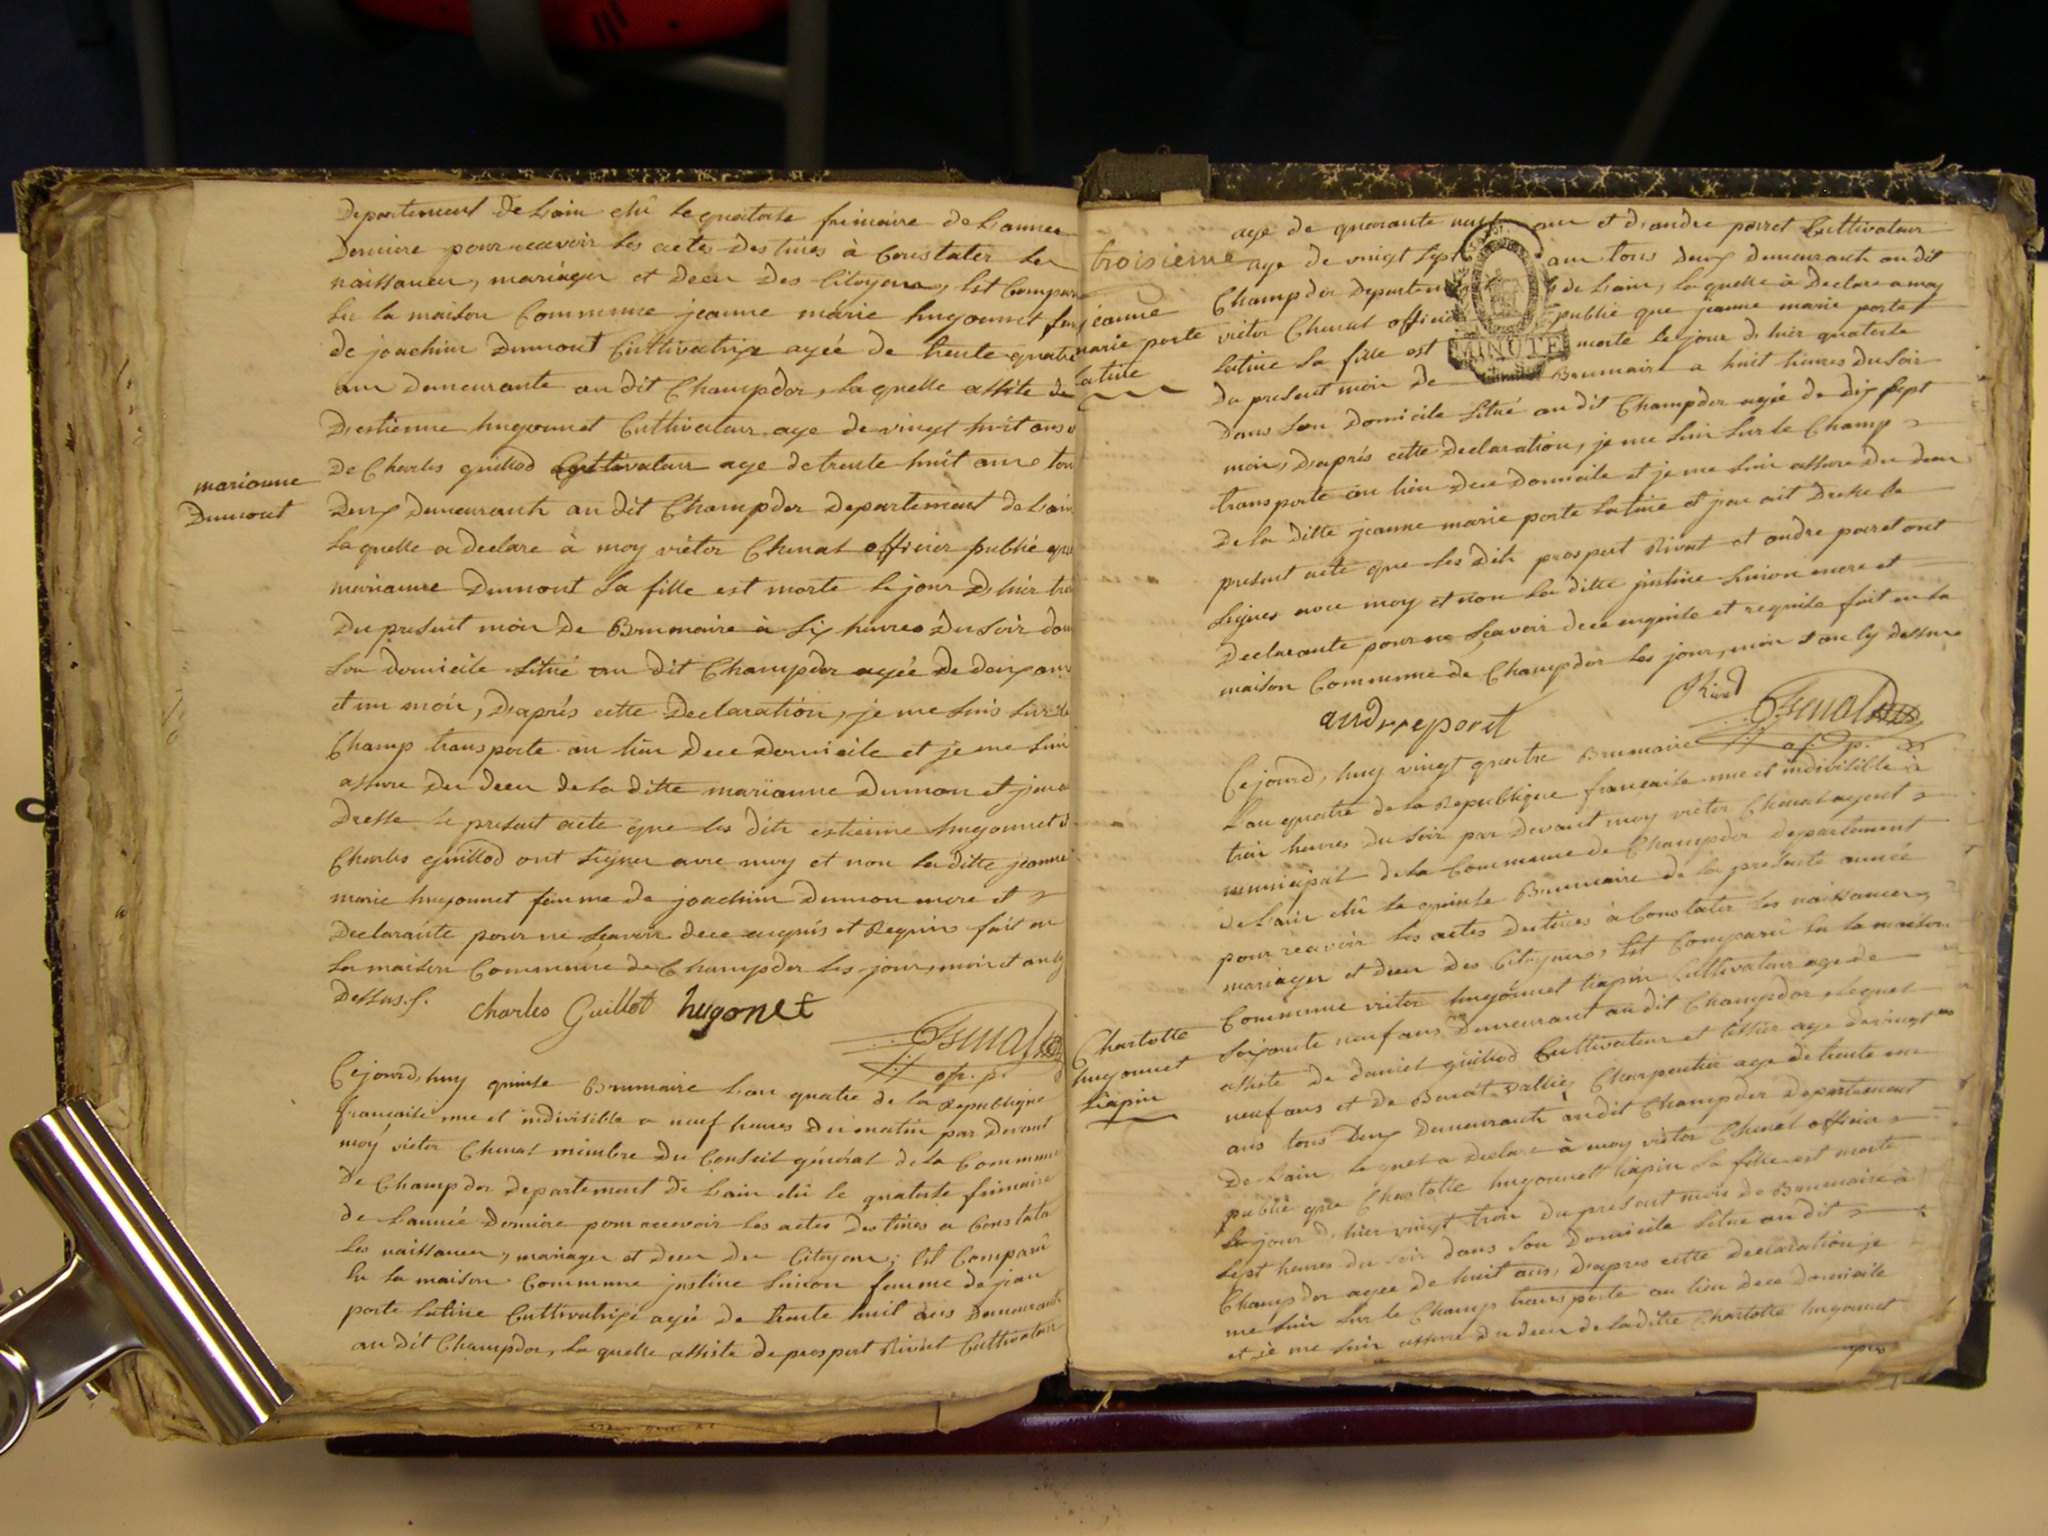 marianne
Dumont
Departement de Lain élû le quatorse frimaire de Lannee
Derniere pour recevoir les actes destinés à Constater les
naissances, mariages et deces des Citoyens, Est Comparu
En la maison Commune jeanne marie hugonnet
de joachim Dumont Cultivatrixe agée de trente quatre
ans demeurante au dit Champdor, la quelle assiste de
D'estienne hugonnet Cultivateur age de vingt huit ans
de Charles guillod Cultivateur age de trente huit ans tous
Deux demeurants au dit Champdor Departement de Lain
la quelle a declare à moy victor Chenal officier publié que
marianne Dumont sa fille est morte le jour D'hier
du present mois de Brumaire à six heures du soir dans
son domicile situé au dit Champdor agée de deux ans
et un mois, D'aprés cette Declaration, je me suis sur le
Champ transporte au lieu dece domicile et je me suis
assure du deces de la ditte marianne dumon et jen ai
dresse le present acte que les dits estienne hugonnet et
Charles guillod ont signes avec moy et non la ditte jeanne
marie hugonnet femme de joachim dumon mere et
Declarante pour ne sçavoir dece enquis et Requis fait en
la maison Commune de Champdor les jour, mois et an cy
dessus.
Charles Guillot hugonet
Chenal
ofr. p.
Cejourd, huy quinse Brumaire Lan quatre de la Republique
francaise une et indivisible a neuf heures du matin par devant
moy victor Chenal membre du Conseil général de la Commune
de Champdor departement de Lain élû le quatorse frimaire
de Lannée derniere pour recevoir les actes destinés a Constater
les naissances, mariages et deces des Citoyens; Est Comparû
En la maison Commune justine Simon femme de jean
porte latine Cultivatrixe agée de trente huit ans Demeurante
au dit Champdor, la quelle assiste de prospert Rivat Cultivateur
troisieme
jeanne
marie porte
latine
age de quarante ans et d'andre poiret Cultivateur
age de vingt sept ans tous deux demeurants au dit
Champdor Departement de Lain, la quelle à Declare a moy
victor Chenal officier publié que jeanne marie porte
latine sa fille est morte le jour d'hier quatorse
MINUTE
du present mois de Brumaire a huit heures du soir
dans son domicile situé au dit Champdor agée de dix sept
mois, D'aprés cette Declaration, je me suis sur le Champ
transporte au lieu dece Domicile et je me suis assure du deces
de la ditte jeanne marie porte latine et jen ait Dresse le
present acte que les dits prospert Rivat et andre poiret ont
signes avec moy et non la ditte justine Simon mere et
Declarante pour ne sçavoir dece enquise et requise fait en la
maison Commune de Champdor les jour, mois et an cy dessus
Rivat
andre poret
Chenal
of. p.
Charlotte
hugonnet
tiapin
Cejourd, huy vingt quatre Brumaire
Lan quatre de la Republique francaise une et indivisible à
trois heures du soir par devant moy victor Chenal agent
municipal de la Commune de Champdor departement
de Lain élû le quinse Brumaire de la presente année
pour recevoir les actes destinés à Constater les naissances,
mariages et deces des Citoyens, Est Comparû En la maison
Commune victor hugonnet tiapin Cultivateur age de
soixante neuf ans demeurant au dit Champdor, lequel
assiste de daniel guillod Cultivateur et tissier age de vingt
neuf ans et de Benoît vallier Charpentier age de trente un
ans tous Deux Demeurants au dit Champdor Departement
de Lain, le quel a declare à moy victor Chenal officier
publié que Charlotte hugonnet tiapin sa fille est morte
le jour d'hier vingt trois du present mois de Brumaire à
sept heures du soir dans son domicile situe au dit
Champdor agee de huit ans, D'apres cette declaration je
me suis sur le Champ transporte au lieu dece domicile
et je me suis assure du deces de la ditte Charlotte hugonnet